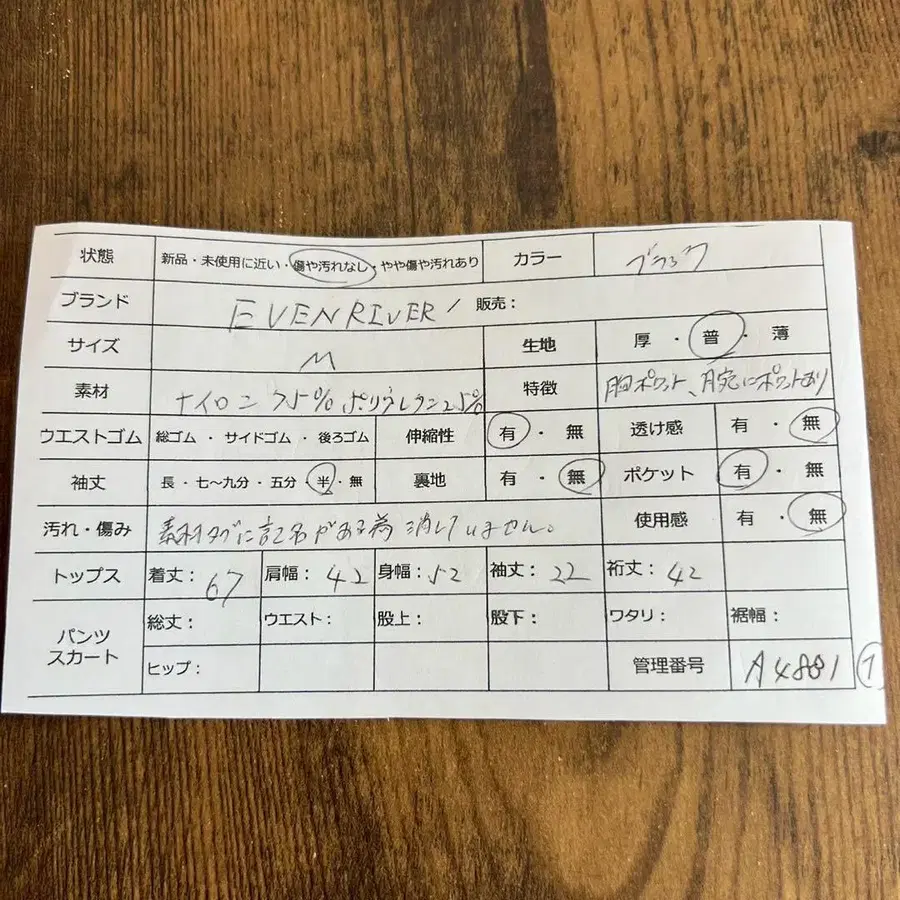 状態 新品・未使用に近い・傷や汚れなし・やや傷や汚れあり カラー ブラック
ブランド EVENRIVER / 販売：
サイズ M 生地 厚・普・薄
素材 ナイロン75% ポリウレタン25% 特徴 胸ポケット、腕にポケットあり
ウエストゴム 総ゴム・サイドゴム・後ろゴム 伸縮性 有・無 透け感 有・無
袖丈 長・七〜九分・五分・半・無 裏地 有・無 ポケット 有・無
汚れ・傷み 素材タグに記名がある為消していません。 使用感 有・無
トップス 着丈：67 肩幅：42 身幅：52 袖丈：22 裄丈：42
パンツ スカート 総丈： ウエスト： 股上： 股下： ワタリ： 裾幅：
ヒップ： 管理番号 A4881 ①